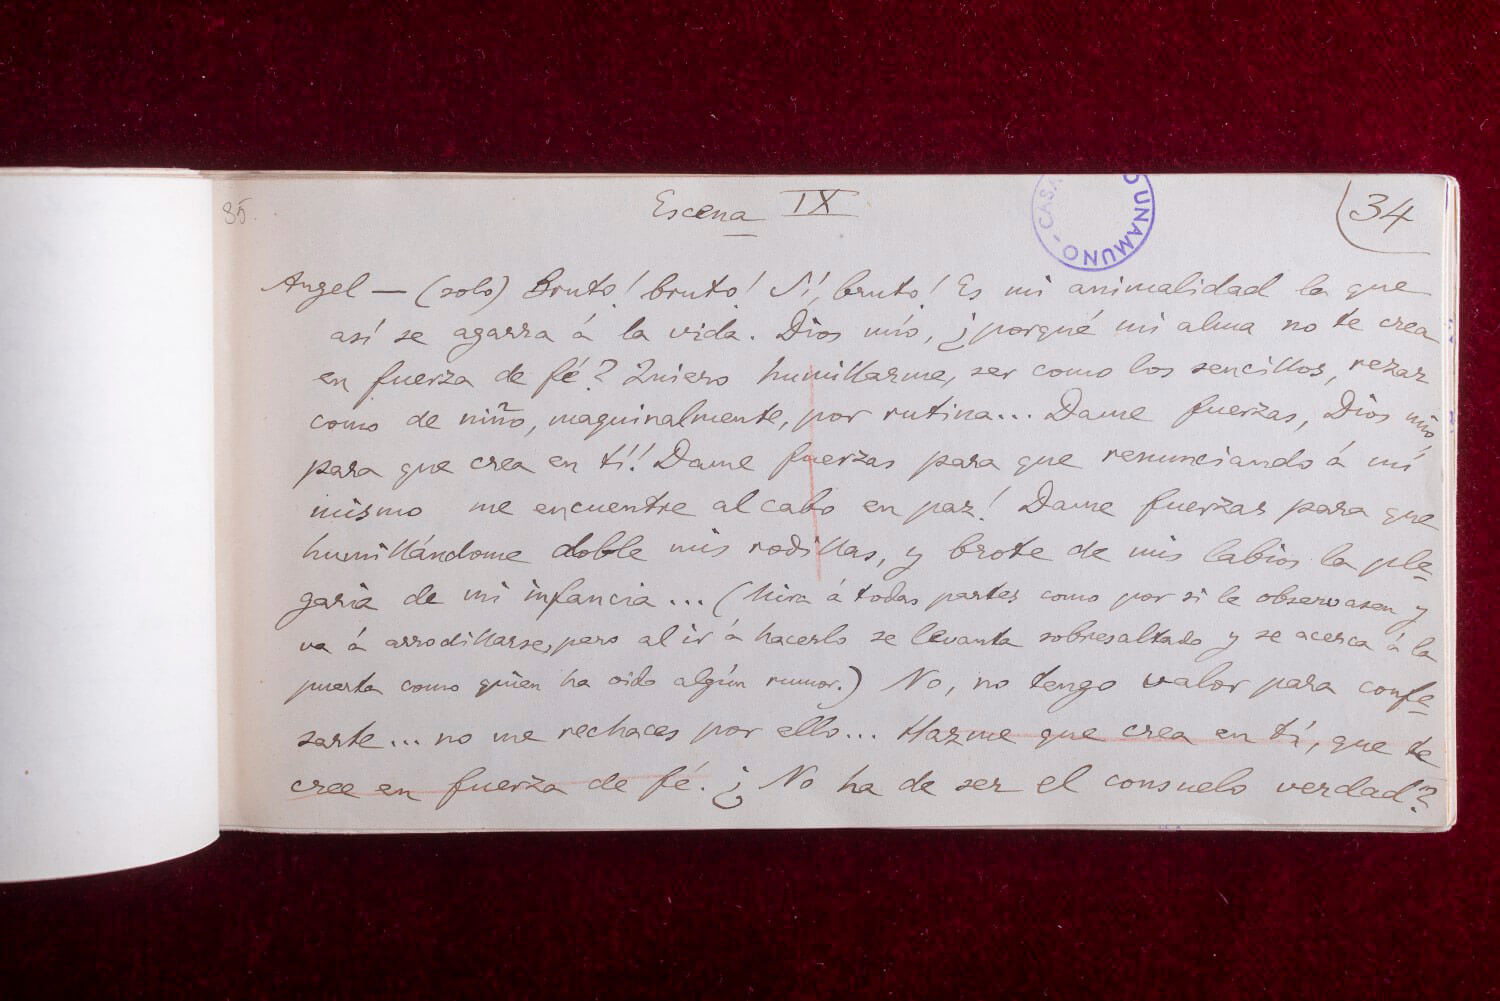 35.
Escena IX
CASA
O UNAMUNO -
34
Angel — (solo) Bruto! bruto! Sí, bruto! Es mi animalidad la que
así se agarra á la vida. Dios mío, ¿porqué mi alma no te crea
en fuerza de fé? Quiero humillarme, ser como los sencillos, rezar
como de niño, maquinalmente, por rutina... Dame fuerzas, Dios mío,
para que crea en tí! Dame fuerzas para que renunciando á mí
mismo me encuentre al cabo en paz! Dame fuerzas para que
humillándome doble mis rodillas, y brote de mis labios la ple-
garia de mi infancia... (Mira á todas partes como por si le observasen y
va á arrodillarse, pero al ir á hacerlo se levanta sobresaltado y se acerca á la
puerta como quien ha oido algún rumor.) No, no tengo valor para confe-
sarte... no me rechaces por ello... Hazme que crea en tí, que te
cree en fuerza de fé. ¿No ha de ser el consuelo verdad?